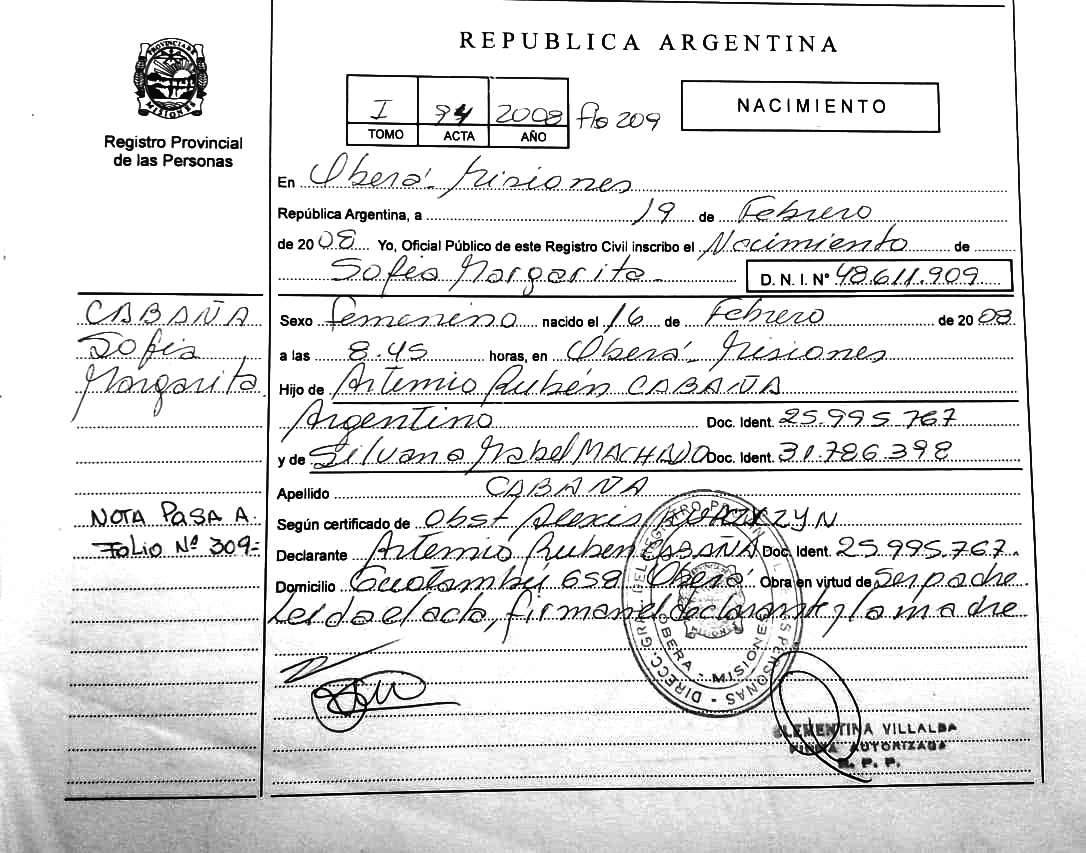 PROVINCIA DE
MISIONES
Registro Provincial
de las Personas
REPUBLICA ARGENTINA
I 94 2008 fio 209
TOMO ACTA AÑO
NACIMIENTO
En Oberá - Misiones
República Argentina, a 19 de Febrero
de 2008 Yo, Oficial Público de este Registro Civil inscribo el Nacimiento de
Sofia Margarita D. N. I. Nº 48.611.909
CABAÑA
Sofia
Margarita
Sexo femenino nacido el 16 de Febrero de 2008
a las 8.45 horas, en Oberá - Misiones
Hijo de Artemio Rubén CABAÑA
Argentino Doc. Ident. 25.995.767
y de Silvana Mabel MACHADO Doc. Ident. 31.786.398
Apellido CABAÑA
NOTA PASA A
FOLIO Nº 309=
Según certificado de Obst Alexis
Declarante Artemio Ruben CABAÑA Doc. Ident. 25.995.767.
Domicilio Guatambú 658 Oberá Obra en virtud de Ser padre
Leida el acta, firman el declarante y la madre
DIRECC. GRAL. DEL REGISTRO PROVINCIAL DE LAS PERSONAS
OBERA - MISIONES
CLEMENTINA VILLALBA
FIRMA AUTORIZADA
R. P. P.